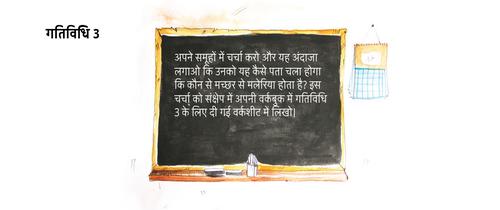 गतिविधि 3
अपने समूहों में चर्चा करो और यह अंदाजा
लगाओ कि उनको यह कैसे पता चला होगा
कि कौन से मच्छर से मलेरिया होता है? इस
चर्चा को संक्षेप में अपनी वर्कबुक में गतिविधि
3 के लिए दी गई वर्कशीट में लिखो।